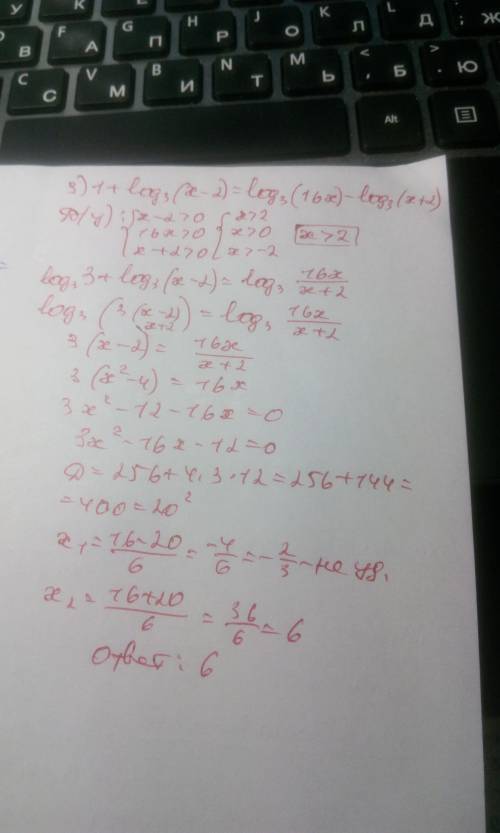 У K L Д ; Ж
F А G П H Р J О K Л L Д
C С V М B И N Т M Ь < , Б > . Ю
Alt
3) 1 + log₃(x-2) = log₃(16x) - log₃(x+2)
Д(у): { x-2>0 { x>2
16x>0 x>0 x>2
x+2>0 x>-2
log₃ 3 + log₃(x-2) = log₃ 16x/(x+2)
log₃ (3(x-2)) = log₃ 16x/(x+2)
x+2
3(x-2) = 16x/(x+2)
3(x²-4) = 16x
3x² - 12 - 16x = 0
3x² - 16x - 12 = 0
D = 256 + 4·3·12 = 256 + 144 =
= 400 = 20²
x₁ = (16-20)/6 = -4/6 = -2/3 - не уд.
x₂ = (16+20)/6 = 36/6 = 6
Ответ: 6